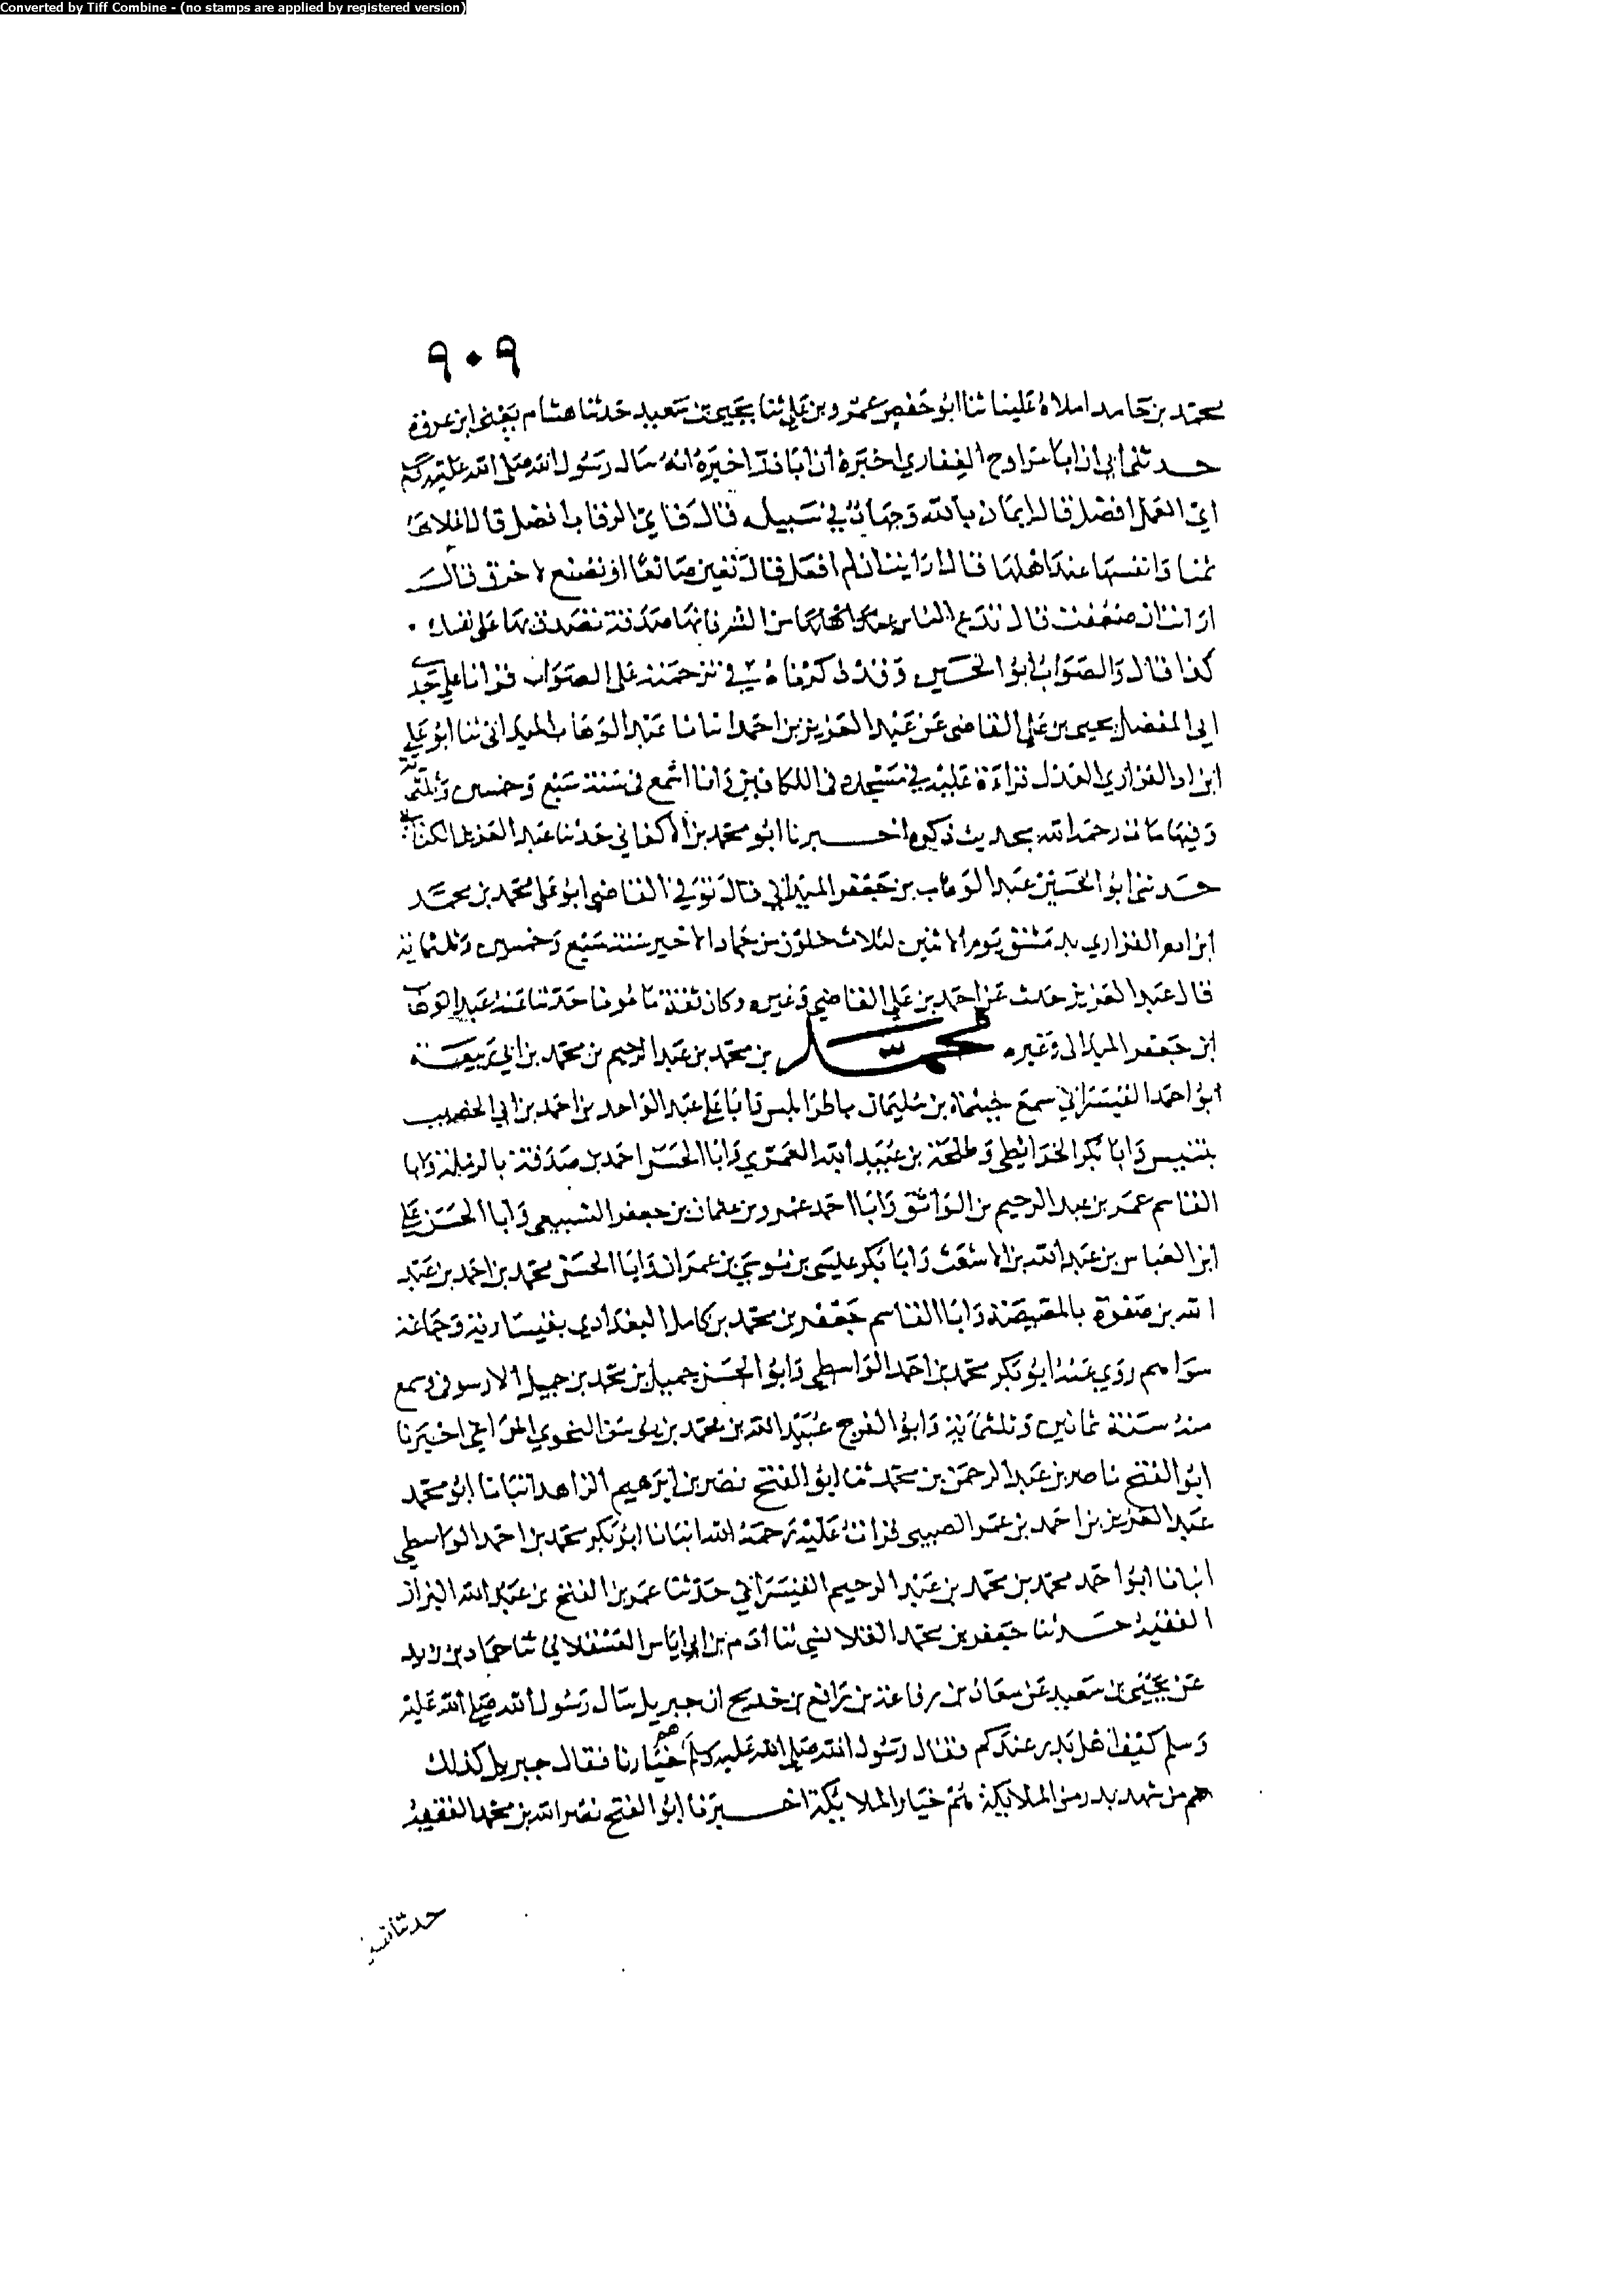 Converted by Tiff Combine - (no stamps are applied by registered version)
٩٠٩
محمد بن حامد املاه علينا ثنا ابو حفص عمرو بن علي ثنا يحيى بن سعيد حدثنا هشام يعني ابن عروة
حدثني ابي ان ابا مراوح الغفاري اخبره ان ابا ذر اخبره انه سال رسول الله صلى الله عليه وسلم
اي العمل افضل قال ايمان بالله وجهاد في سبيله قال فاي الرقاب افضل قال اغلاها
ثمنا وانفسها عند اهلها قال ارايت ان لم افعل قال تعين صانعا او تصنع لاخرق قال
ارايت ان ضعفت قال تدع الناس من الشر فانها صدقة تصدق بها على نفسك
كذا قال والصواب ابو الحسين وقد ذكرناه في ترجمته على الصواب قرانا على جدي
ابي المفضل يحيى بن علي القاضي عن عبد العزيز بن احمد انبانا عبد الوهاب الميداني ثنا ابو علي
ابن ادم الفزاري العدل قراءة عليه في مسجده في اللكافين وانا اسمع في سنة سبع وخمسين وثلثمائة
وفيها مات رحمه الله بحديث ذكره اخبرنا ابو محمد بن الاكفاني حدثنا عبد العزيز الكتاني
حدثني ابو الحسين عبد الوهاب بن جعفر الميداني قال توفي القاضي ابو علي محمد بن محمد
ابن ادم الفزاري بدمشق يوم الاثنين لثلاث خلون من جماد الاخير سنة سبع وخمسين وثلثماية
قال عبد العزيز حدث عن احمد بن علي القاضي وغيره وكان ثقة مامونا حدثنا عنه عبد الوهاب
ابن جعفر الميداني وغيره محمد بن محمد بن عبد الرحيم بن محمد بن ابي ربيعة
ابو احمد القيسراني سمع خيثمة بن سليمان باطرابلس وابا علي عبد الواحد بن احمد بن ابي الخصيب
بتنيس وابا بكر الخرائطي وطلحة بن عبيد الله العمري وابا الحسن احمد بن صدقة بالرملة وابا
القاسم عمر بن عبد الرحيم بن الواثق وابا احمد عمرو بن عثمان بن جعفر السبيعي وابا الحسن علي
ابن العباس بن عبد الله بن الاشعث وابا بكر عيسى بن موسى بن عمران وابا الحسن محمد بن احمد بن عبد
الله بن صفوة بالمصيصة وابا القاسم جعفر بن محمد بن كامل البغدادي بقيسارية وجماعة
سواهم روى عنه ابو بكر محمد بن احمد الواسطي وابو الحسن جميل بن محمد بن جميل الارسوفي وسمع
منه سنة ثمانين وثلثماية وابو الفرج عبيد الله بن محمد بن يوسف النحوي المراغي اخبرنا
ابو الفتح ناصر بن عبد الرحمن بن محمد ثنا ابو الفتح نصر بن ابرهيم الزاهد انبانا ابو محمد
عبد العزيز بن احمد بن عمر النصيبي قرات عليه رحمه الله انبانا ابو بكر محمد بن احمد الواسطي
انبانا ابو احمد محمد بن محمد بن عبد الرحيم القيسراني حدثنا عمر بن الفتح بن عبد الله البزاز
الفقيه حدثنا جعفر بن محمد القلانسي ثنا ادم بن ابي اياس العسقلاني ثنا حماد بن زيد
عن يحيى بن سعيد عن معاذ بن رفاعة بن رافع بن خديج ان جبريل سال رسول الله صلى الله عليه
وسلم كيف اهل بدر عندكم فقال رسول الله صلى الله عليه وسلم هم خيارنا فقال جبريل كذلك
هم من شهد بدر من الملايكة هم خيار الملايكة اخبرنا ابو الفتح نصر الله بن محمد الفقيه
حدثنا